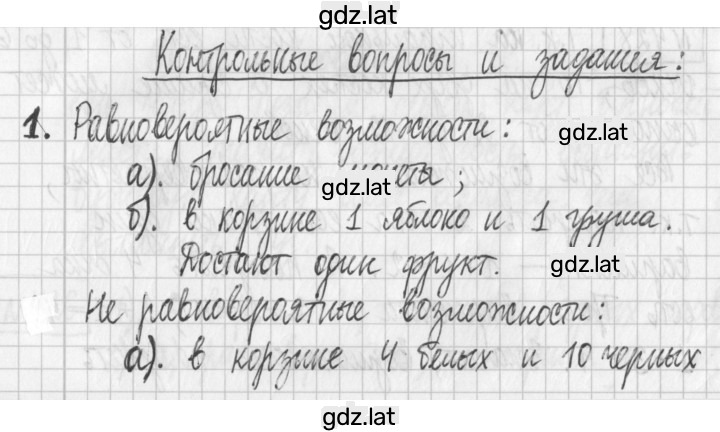 gdz.lat
Контрольные вопросы и задания:
1. Равновероятные возможности: gdz.lat
а). бросание монеты;
gdz.lat
б). в корзине 1 яблоко и 1 груша.
Достают один фрукт. gdz.lat
Не равновероятные возможности:
а). в корзине 4 белых и 10 черных
gdz.lat